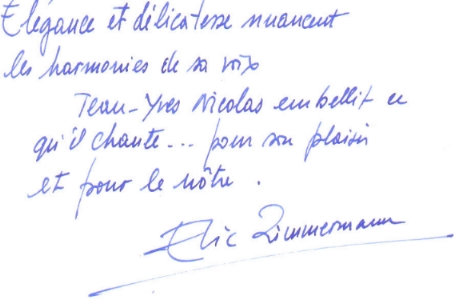 Elégance et délicatesse nuancent
les harmonies de sa voix
Jean-Yves Nicolas embellit ce
qu'il chante... pour son plaisir
et pour le nôtre.
Eric Zimmermann